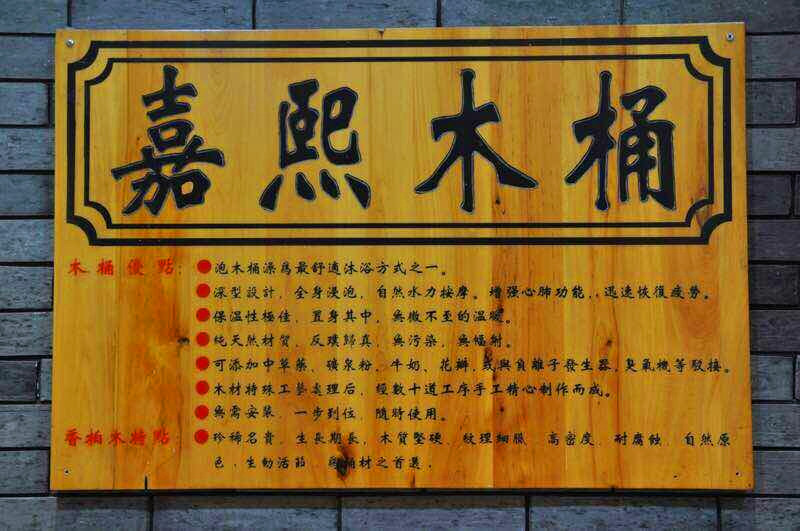 嘉熙木桶
木桶優點：●泡木桶澡爲最舒適沐浴方式之一。
●深型設計，全身浸泡，自然水力按摩。增强心肺功能，迅速恢復疲勞。
●保溫性極佳，置身其中，無微不至的溫暖。
●純天然材質，反璞歸真，無污染，無輻射。
●可添加中草藥、礦泉粉、牛奶、花瓣，或與負離子發生器，臭氧機等駁接。
●木材特殊工藝處理后，經數十道工序手工精心制作而成。
●無需安裝，一步到位，隨時使用。
香柏木特點：●珍稀名貴，生長期長，木質堅硬，紋理細膩，高密度，耐腐蝕，自然原
色，生動活節，桶材之首選．